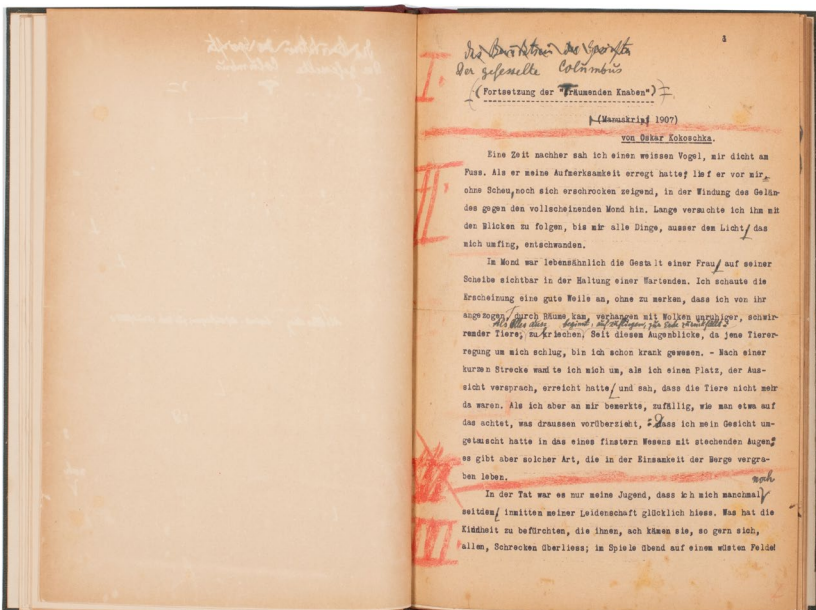 1
Der gefesselte Columbus
(Fortsetzung der "Träumenden Knaben")
(Manuskript 1907)
von Oskar Kokoschka.
I.
II
Eine Zeit nachher sah ich einen weissen Vogel, mir dicht am
Fuss. Als er meine Aufmerksamkeit erregt hatte, lief er vor mir,
ohne Scheu, noch sich erschrocken zeigend, in der Windung des Gelän-
des gegen den vollscheinenden Mond hin. Lange versuchte ich ihm mit
den Blicken zu folgen, bis mir alle Dinge, ausser dem Licht, das
mich umfing, entschwanden.
Im Mond war lebensähnlich die Gestalt einer Frau, auf seiner
Scheibe sichtbar in der Haltung einer Wartenden. Ich schaute die
Erscheinung eine gute Weile an, ohne zu merken, dass ich von ihr
angezogen, durch Räume kam, verhangen mit Wolken unruhiger, schwir-
Als alles dies beginnt, aufzufliegen, zur Erde zurückfällt
render Tiere, zu kriechen. Seit diesem Augenblicke, da jene Tierer-
regung um mich schlug, bin ich schon krank gewesen. - Nach einer
kurzen Strecke wandte ich mich um, als ich einen Platz, der Aus-
sicht versprach, erreicht hatte, und sah, dass die Tiere nicht mehr
da waren. Als ich aber an mir bemerkte, zufällig, wie man etwa auf
das achtet, was draussen vorüberzieht, dass ich mein Gesicht um-
getauscht hatte in das eines finstern Wesens mit stechenden Augen;
es gibt aber solcher Art, die in der Einsamkeit der Berge vergra-
ben leben.
III
noch
In der Tat war es nur meine Jugend, dass ich mich manchmal
seitdem, inmitten meiner Leidenschaft glücklich hiess. Was hat die
Kindheit zu befürchten, die ihnen, ach kämen sie, so gern sich,
allen, Schrecken überliess; im Spiele übend auf einem wüsten Felde!